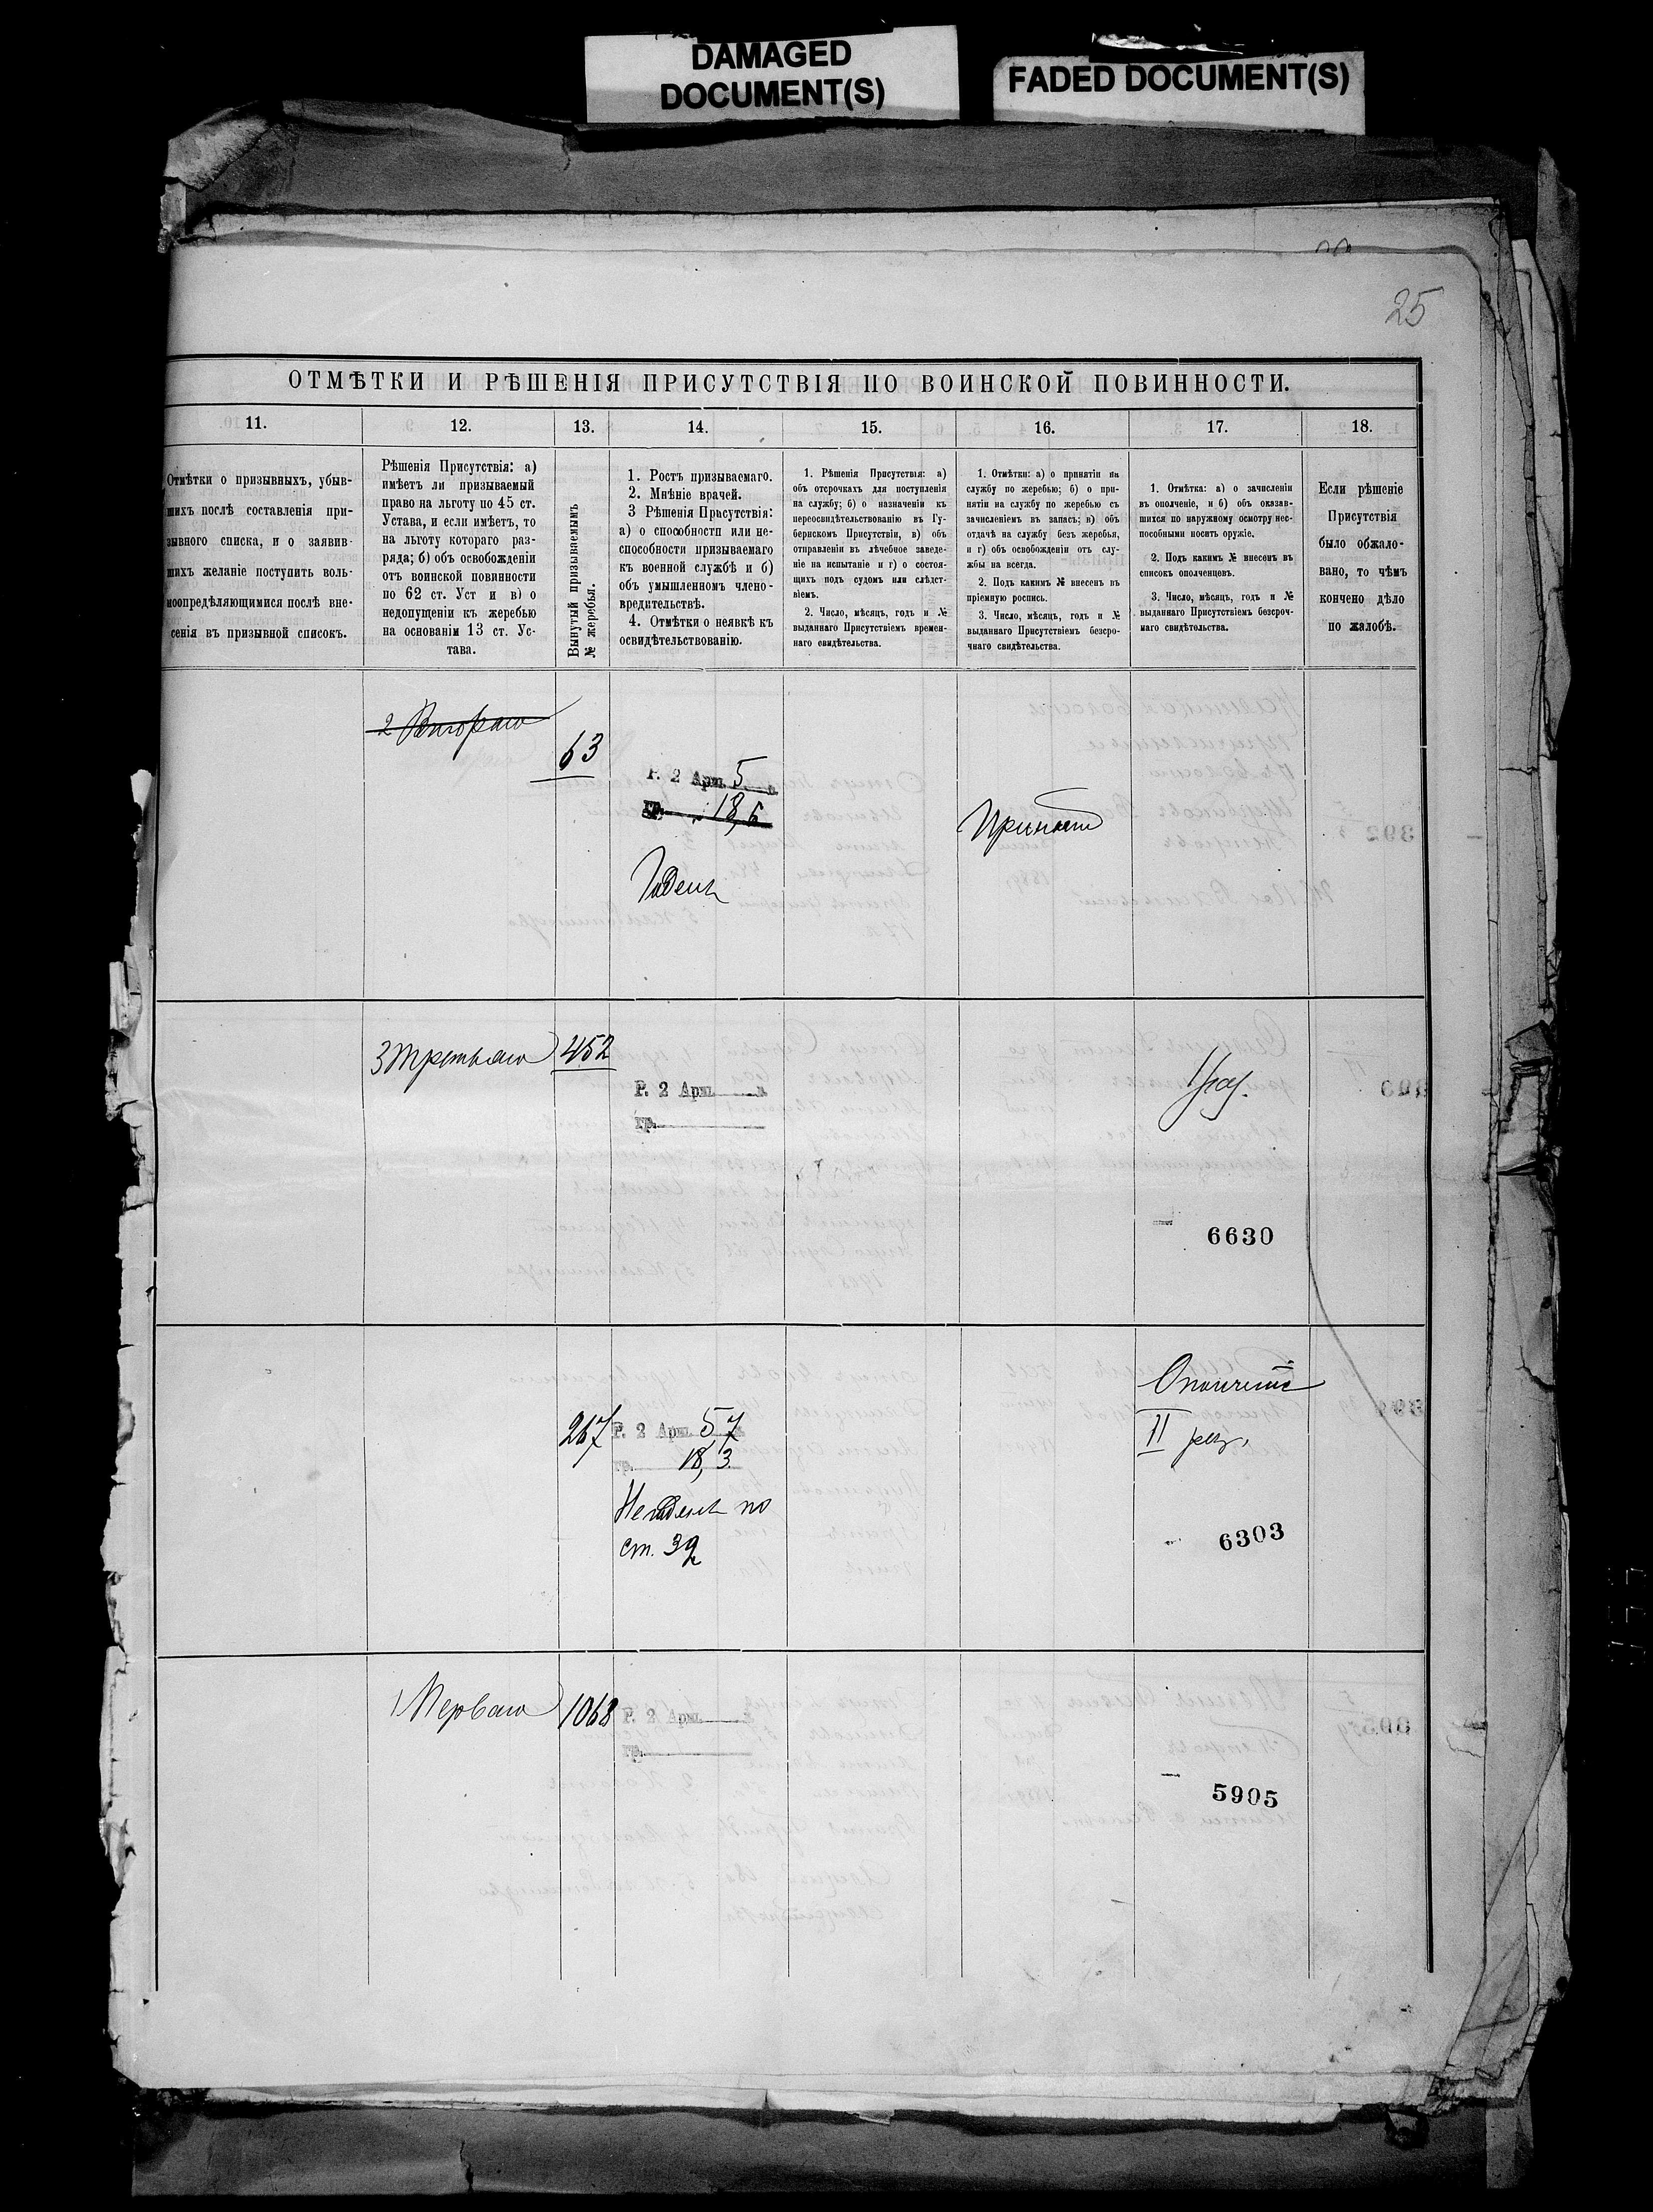 DAMAGED
DOCUMENT(S)
FADED DOCUMENT(S)
25
ОТМѢТКИ И РѢШЕНІЯ ПРИСУТСТВІЯ ПО ВОИНСКОЙ ПОВИННОСТИ.
11.
12.
13.
14.
15.
16.
17.
18.
Отмѣтки о призывныхъ, убыв-
шихъ послѣ составленія при-
зывного списка, и о заявив-
шихъ желаніе поступить воль-
ноопредѣляющимися послѣ вне-
сенія въ призывной списокъ.
Рѣшенія Присутствія: а)
имѣетъ ли призываемый
право на льготу по 45 ст.
Устава, и если имѣетъ, то
на льготу котораго раз-
ряда; б) объ освобожденіи
отъ воинской повинности
по 62 ст. Уст и в) о
недопущеніи къ жеребью
на основаніи 13 ст. Ус-
тава.
Вынутый призываемымъ
№ жеребья.
1. Ростъ призываемаго.
2. Мнѣніе врачей.
3 Рѣшенія Присутствія:
а) о способности или не-
способности призываемаго
къ военной службѣ и б)
объ умышленномъ члено-
вредительствѣ.
4. Отмѣтки о неявкѣ къ
освидѣтельствованію.
1. Рѣшенія Присутствія: а)
объ отсрочкахъ для поступленія
на службу; б) о назначеніи къ
переосвидѣтельствованію въ Гу-
бернскомъ Присутствіи, в) объ
отправленіи въ лѣчебное заведе-
ніе на испытаніе и г) о состоя-
щихъ подъ судомъ или слѣдст-
віемъ.
2. Число, мѣсяцъ, годъ и №
выданнаго Присутствіемъ времен-
наго свидѣтельства.
1. Отмѣтки: а) о принятіи на
службу по жеребью; б) о при-
нятіи на службу по жеребью съ
зачисленіемъ въ запасъ; в) объ
отдачѣ на службу безъ жеребья,
и г) объ освобожденіи отъ слу-
жбы на всегда.
2. Подъ какимъ № внесенъ въ
пріемную роспись.
3. Число, мѣсяцъ, годъ и №
выданнаго Присутствіемъ безсро-
чнаго свидѣтельства.
1. Отмѣтка: а) о зачисленіи
въ ополченіе, и б) объ оказав-
шихся по наружному осмотру нес-
пособными носить оружіе.
2. Подъ какимъ № внесенъ въ
списокъ ополченцевъ.
3. Число, мѣсяцъ, годъ и №
выданнаго Присутствіемъ безсроч-
наго свидѣтельства.
Если рѣшеніе
Присутствія
было обжало-
вано, то чѣмъ
кончено дѣло
по жалобѣ.
2 Втораго
63
Р. 2 Арш. 5 в.
гр. 18,6
Годенъ
Принятъ
3 Третьяго
452
Р. 2 Арш. в
гр.
6630
267
Р. 2 Арш. 5 7 в
гр. 18,3
Негоденъ по
ст. 39
Ополченіе
II раз.
6303
1 Перваго
1068
Р. 2 Арш. в
гр.
5905